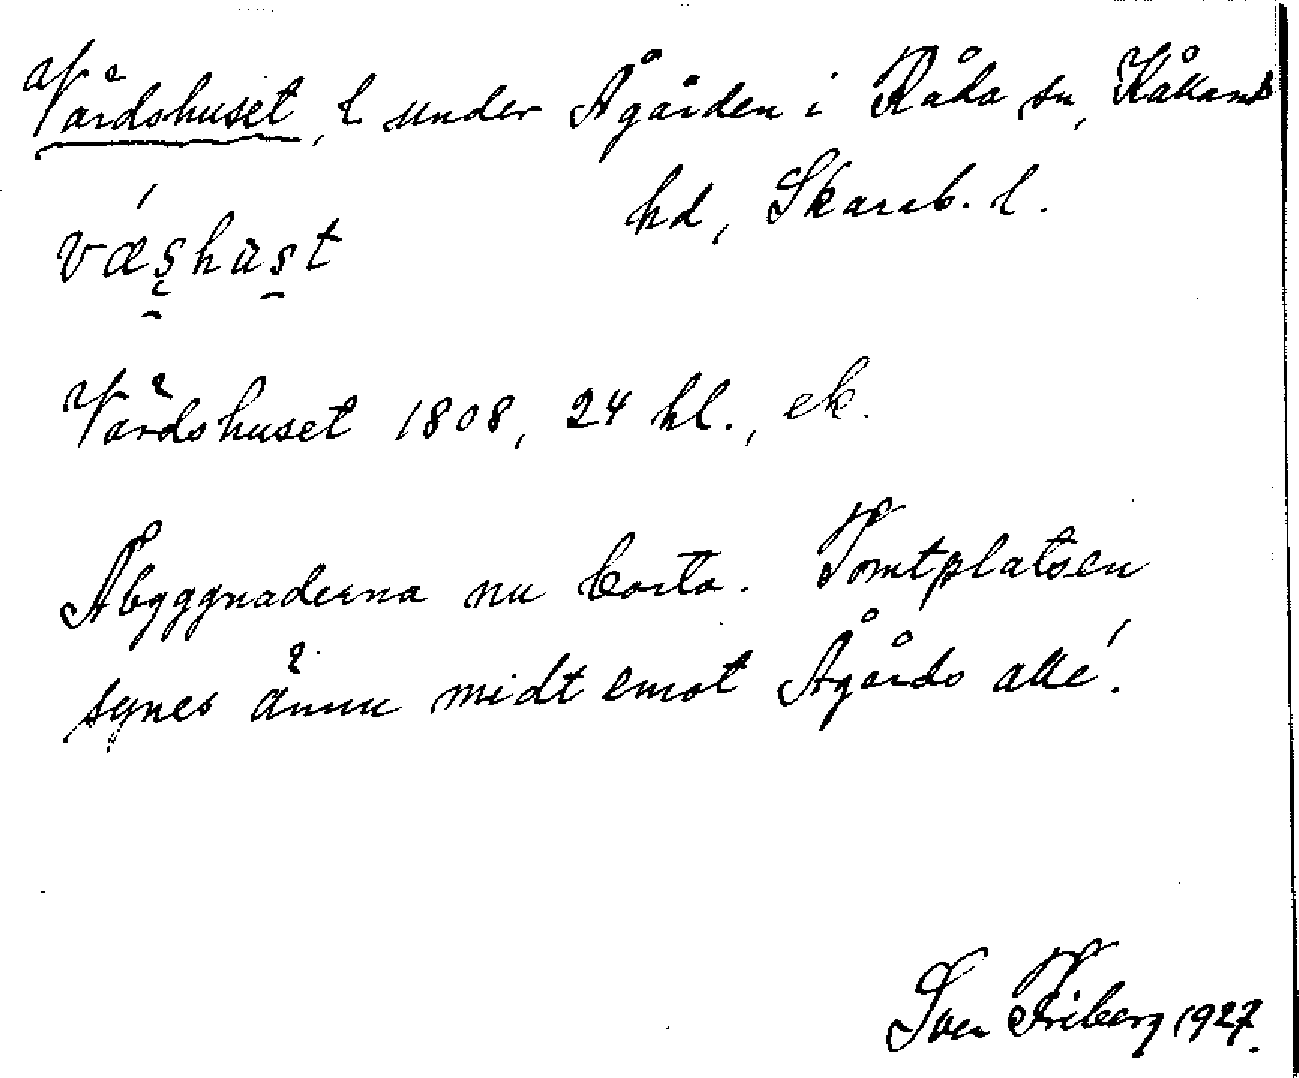 Vårdshuset, l under Ågården i Råda sn, Kållands
hd, Skarab. l.
væʂhuʂt
Vårdshuset 1808, 24 hl., ek.
Åbyggnaderna nu borta. Tomtplatsen
synes ännu midt emot Ågårds allé.
Sven Friberg 1927.